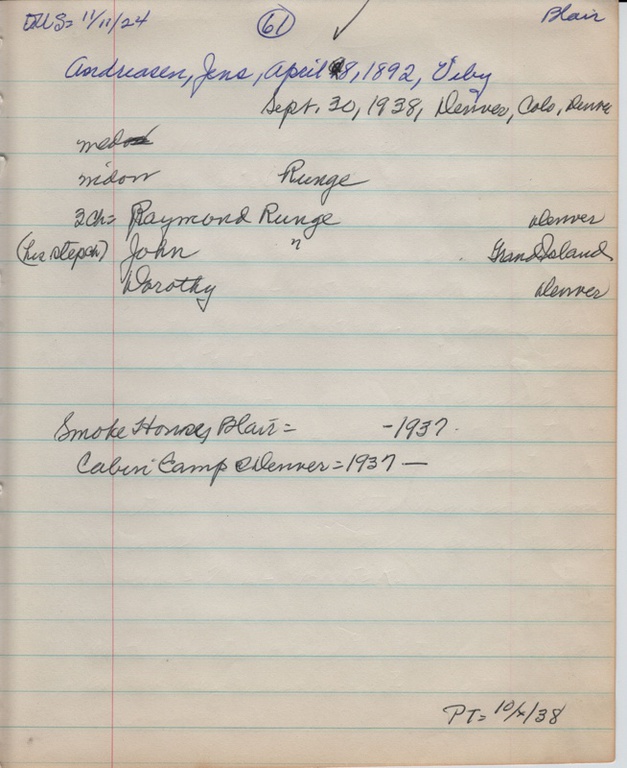 DWS= 11/11/24 61 ✓ Blair
Andreasen, Jens, April 8, 1892, Viby
Sept. 30, 1938, Denver, Colo, Denve
med
widow Runge
3ch= Raymond Runge Denver
(his stepch) John " Grand Island
Dorothy Denver
Smoke House, Blair= -1937.
Cabin Camp Denver=1937—
PT= 10/4/38